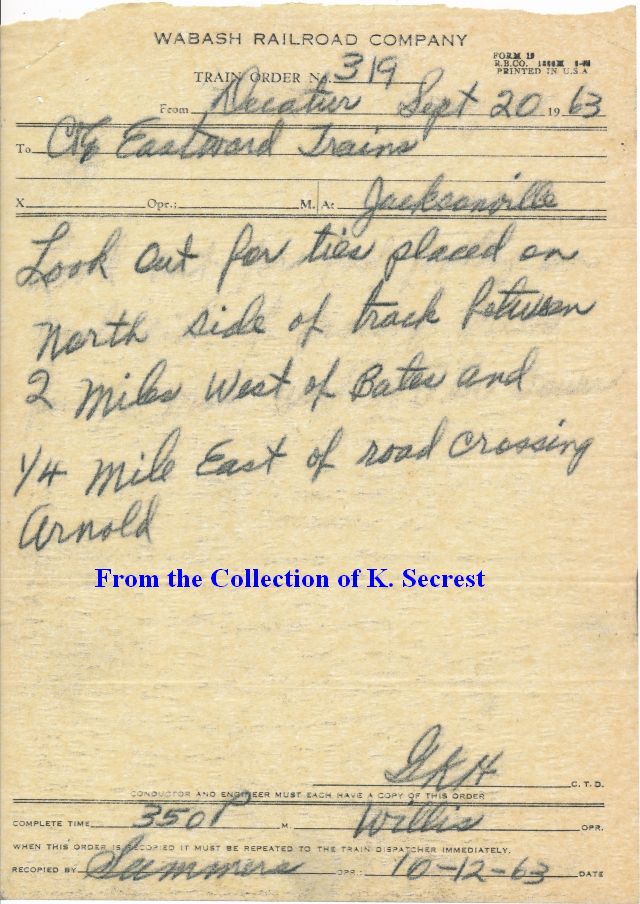 WABASH RAILROAD COMPANY
FORM 19
R.B.CO.
PRINTED IN U.S.A
TRAIN ORDER No. 319
From Decatur Sept 20 1963
To C&E Eastward Trains
X Opr.: M. At Jacksonville
Look out for ties placed on
North side of track between
2 Miles West of Bates and
1/4 Mile East of road crossing
Arnold
From the Collection of K. Secrest
GKH C.T.D.
CONDUCTOR AND ENGINEER MUST EACH HAVE A COPY OF THIS ORDER
COMPLETE TIME 350P M. Willis OPR.
WHEN THIS ORDER IS RECOPIED IT MUST BE REPEATED TO THE TRAIN DISPATCHER IMMEDIATELY.
RECOPIED BY Summers OPR.: 10-12-63 DATE